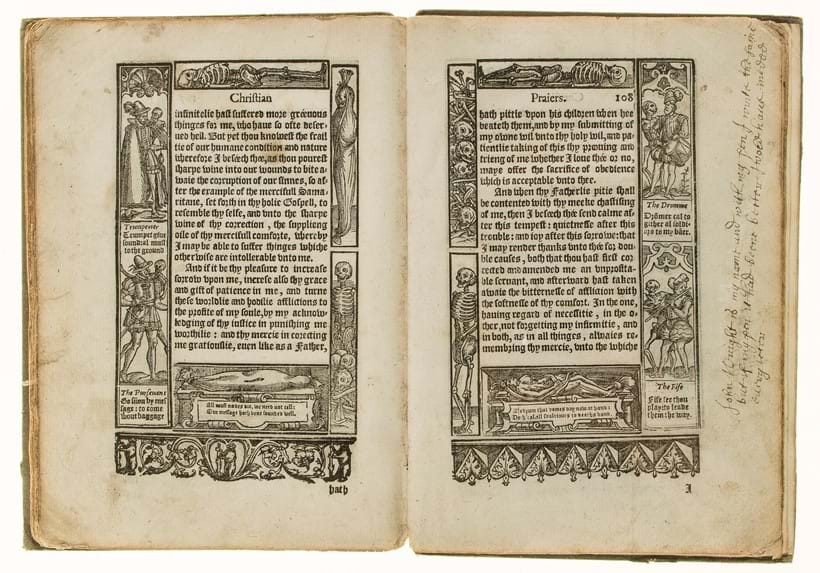 Christian
infinitelie hast suffered more gréeuous
thinges for me, who haue so ofte deser-
ued hell. But yet thou knowest the frail
tie of our humane condition and nature
wherefore I beséech thée, as thou pourest
sharpe wine into our wounds to bite a-
waie the corruption of our sinnes, so af-
ter the example of the mercifull Sama-
ritane, set forth in thy holie Gospell, to
resemble thy selfe, and vnto the sharpe
wine of thy correction, the supplieng
oile of thy mercifull comforte, whereby
I may be able to suffer thinges whiche
otherwise are intollerable vnto me.
And if it be thy pleasure to increase
sorrow vpon me, increse also thy grace
and gift of patience in me, and turne
these worldlie and bodilie afflictions to
the profite of my soule, by my acknow-
ledging of thy iustice in punishing me
worthilie: and thy mercie in correcting
me gratiouslie, euen like as a Father,
Trumpeter
Trumpet giue
sound: al must
to the ground
The Pursevant
Go soon by mes
sage: to come
bout baggage
All must
we need not tell:
The message hath bene sounded well.
hath
Praiers. 108
hath pittie vpon his children when hee
beateth them, and by my submitting of
my owne wil vnto thy holy wil, and pa-
tientlie taking of this thy prouing and
trieng of me whether I loue thée or no,
maye offer the sacrifice of obedience
which is acceptable vnto thee.
And when thy Fatherlie pitie shall
be contented with thy meeke chastising
of me, then I beséech thée send calme af-
ter this tempest: quietnesse after this
trouble: and ioy after this sorrowe: that
I may render thanks vnto thée for dou-
ble causes, both that thou hast first cor-
rected and amended me an vnprofita-
ble seruant, and afterward hast taken
awaie the bitternesse of affliction with
the softnesse of thy comfort. In the one,
hauing regard of necessitie, in the o-
ther, not forgetting my infirmitie, and
in both, as in all things, alwaies re-
membring thy mercie, vnto the which
The Dromme
Drõmer cal to
gither al soldi-
ors to my båer.
The Fife
Fife sée thou
play: to leade
them the way.
that domes day now at hand:
Do
all souldiours to
I
John Knight is my name and with my pen I write the same
but if my pen it had beene better I would haue mended
euery letter